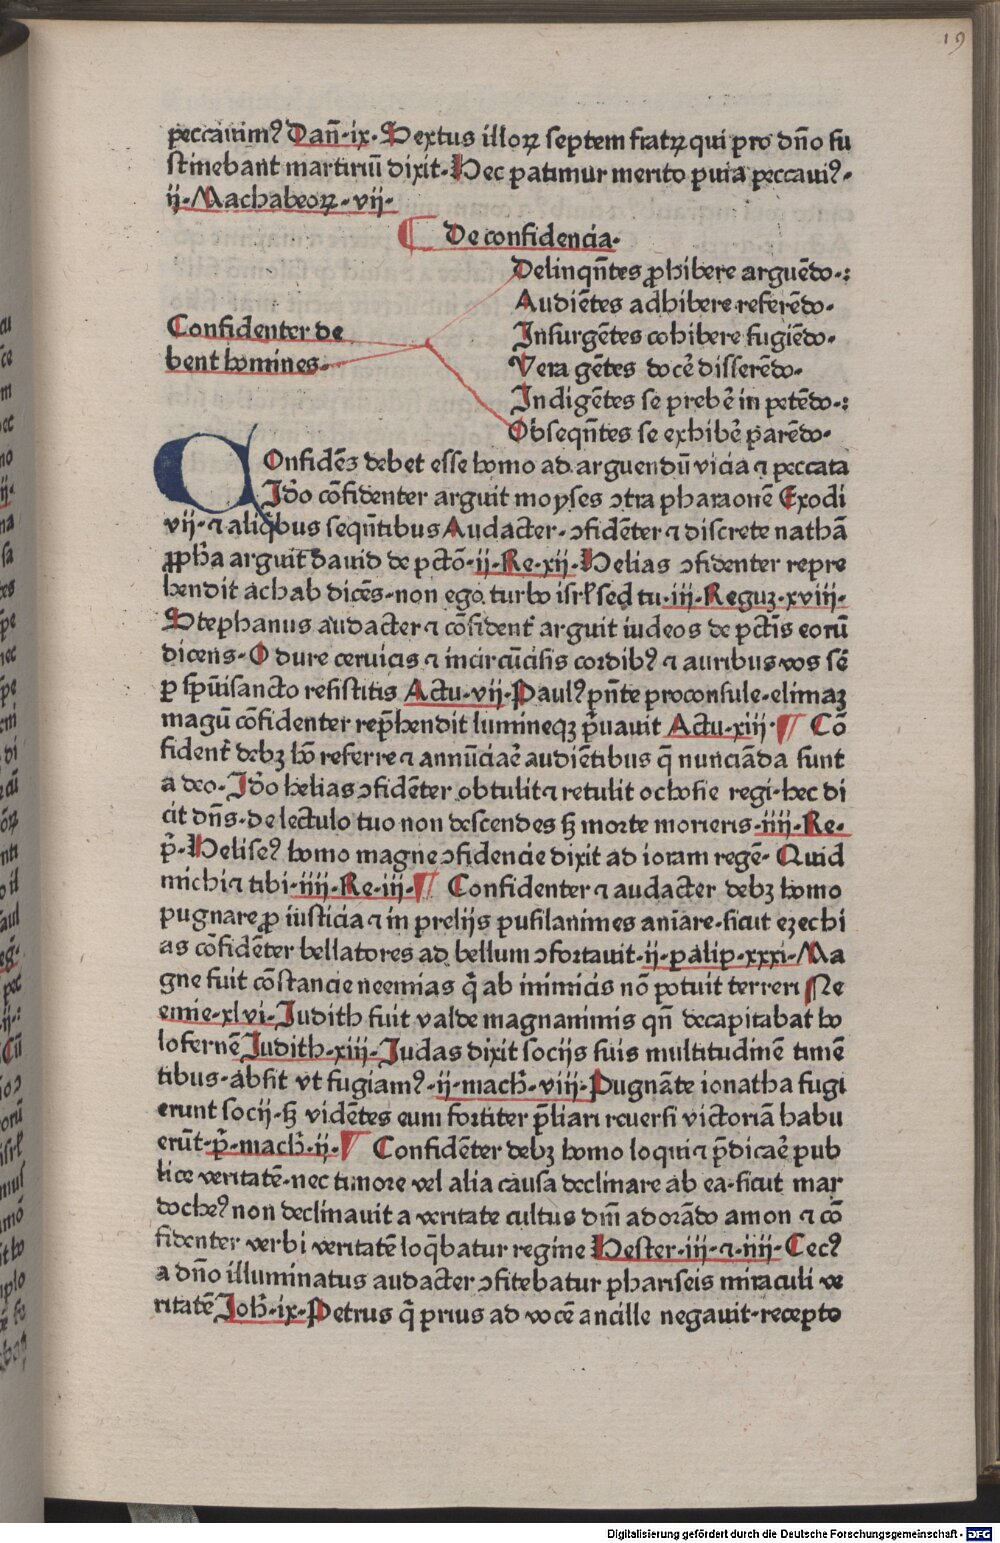 19
peccauimꝰ Dan̄·ix· Sextus illoꝝ septem fratꝝ qui pro dn̄o su
stinebant martiriū dixit· Hec patimur merito ꝓ uia peccauiꝰ·
ij·Machabeoꝝ·vij·
De confidencia·
Confidenter de
bent homines·
Delinqn̄tes ꝓhibere arguēdo·:
Audiētes adhibere referēdo·
Insurgētes cohibere fugiēdo·
Vera gētes docē disserēdo·
Indigētes se prebē in petēdo·:
Obseqn̄tes se exhibē parēdo·
COnfidēs debet esse homo ad arguendū vicia ⁊ peccata
Ido cōfidenter arguit moyses ↄtra pharaonē Exodi
vij·⁊ aliqͥbus seqn̄tibus Audacter·ↄfidēter ⁊ discrete nathā
ꝓph̄a arguit dauid de pctō·ij·Re·xij·Helias ↄfidenter repre
hendit achab dicēs·non ego turbo isrł sed tu·iij·Reguꝫ·xviij·
Stephanus audacter ⁊ cōfident̄ arguit iudeos de pctīs eorū
dicens·O dure ceruicis ⁊ incircūcisis cordibꝰ ⁊ auribus vos sē
ꝑ spūisancto resistitis Actu·vij·Paulꝰ pn̄te proconsule·elimaꝫ
magū cōfidenter rep̄hendit lumineqꝫ pͥuauit Actu·xiij·¶ Cō
fident̄ debꝫ hō referre ⁊ annūciaē audiētibus q̄ nuncianda sunt
a deo·Ido helias ↄfidēter obtulit ⁊ retulit ochosie regi·hec di
cit dn̄s·de lectulo tuo non descendes sꝫ morte morieris·iiij·Re·
pͥ·Heliseꝰ homo magne ↄfidencie dixit ad ioram regē·Quid
michi ⁊ tibi·iiij·Re·iij·¶ Confidenter ⁊ audacter debꝫ homo
pugnare ꝓ iusticia ⁊ in prelijs pusilanimes aniare·sicut ezechi
as cōfidēter bellatores ad bellum ↄfortauit·ij·palip·xxxi·Ma
gne fuit cōstancie neemias qͥ ab inimicis nō potuit terreri Ne
emie·xlvi·Judith fuit valde magnanimis qn̄ decapitabat ho
lofernē Judith·xiij·Judas dixit socijs suis multitudinē timē
tibus·absit vt fugiamꝰ·ij·mach̄·viij·Pugnāte ionatha fugi
erunt socij·sꝫ vidētes eum fortiter p̄liari reuersi victoriā habu
erūt·pͥ·mach̄·ij·¶ Confidēter debꝫ homo loqui ⁊ p̄dicaē pub
lice veritatē·nec timore vel alia causa declinare ab ea·sicut mar
docheꝰ non declinauit a veritate cultus dm̄ adorādo amon ⁊ cō
fidenter verbi veritatē loqͥbatur regine Hester·iij·⁊·iiij·Cecꝰ
a dn̄o illuminatus audacter ↄfitebatur phariseis miraculi ve
ritatē Joh̄·ix·Petrus qͥ prius ad vocē ancille negauit·recepto
Digitalisierung gefördert durch die Deutsche Forschungsgemeinschaft - DFG